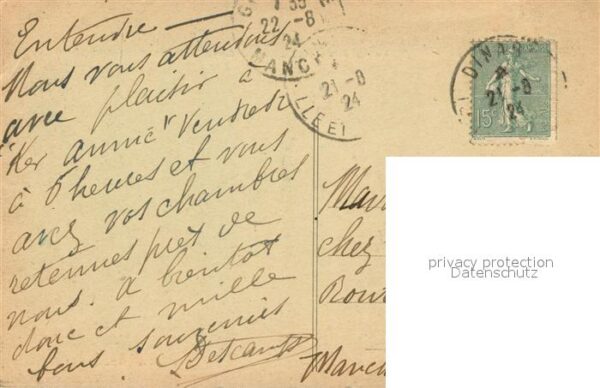 Entendu —
Nous vous attendons
avec plaisir à
Vendredi
à 6 heures et vous
avez vos chambres
retenues près de
nous. a bientôt
donc et mille
bons souvenirs
22 - 8
24
MANCH
21 - 8
24
ILLE ET
DINAR
21 - 8
24
15
chez
Manc
privacy protection
Datenschutz